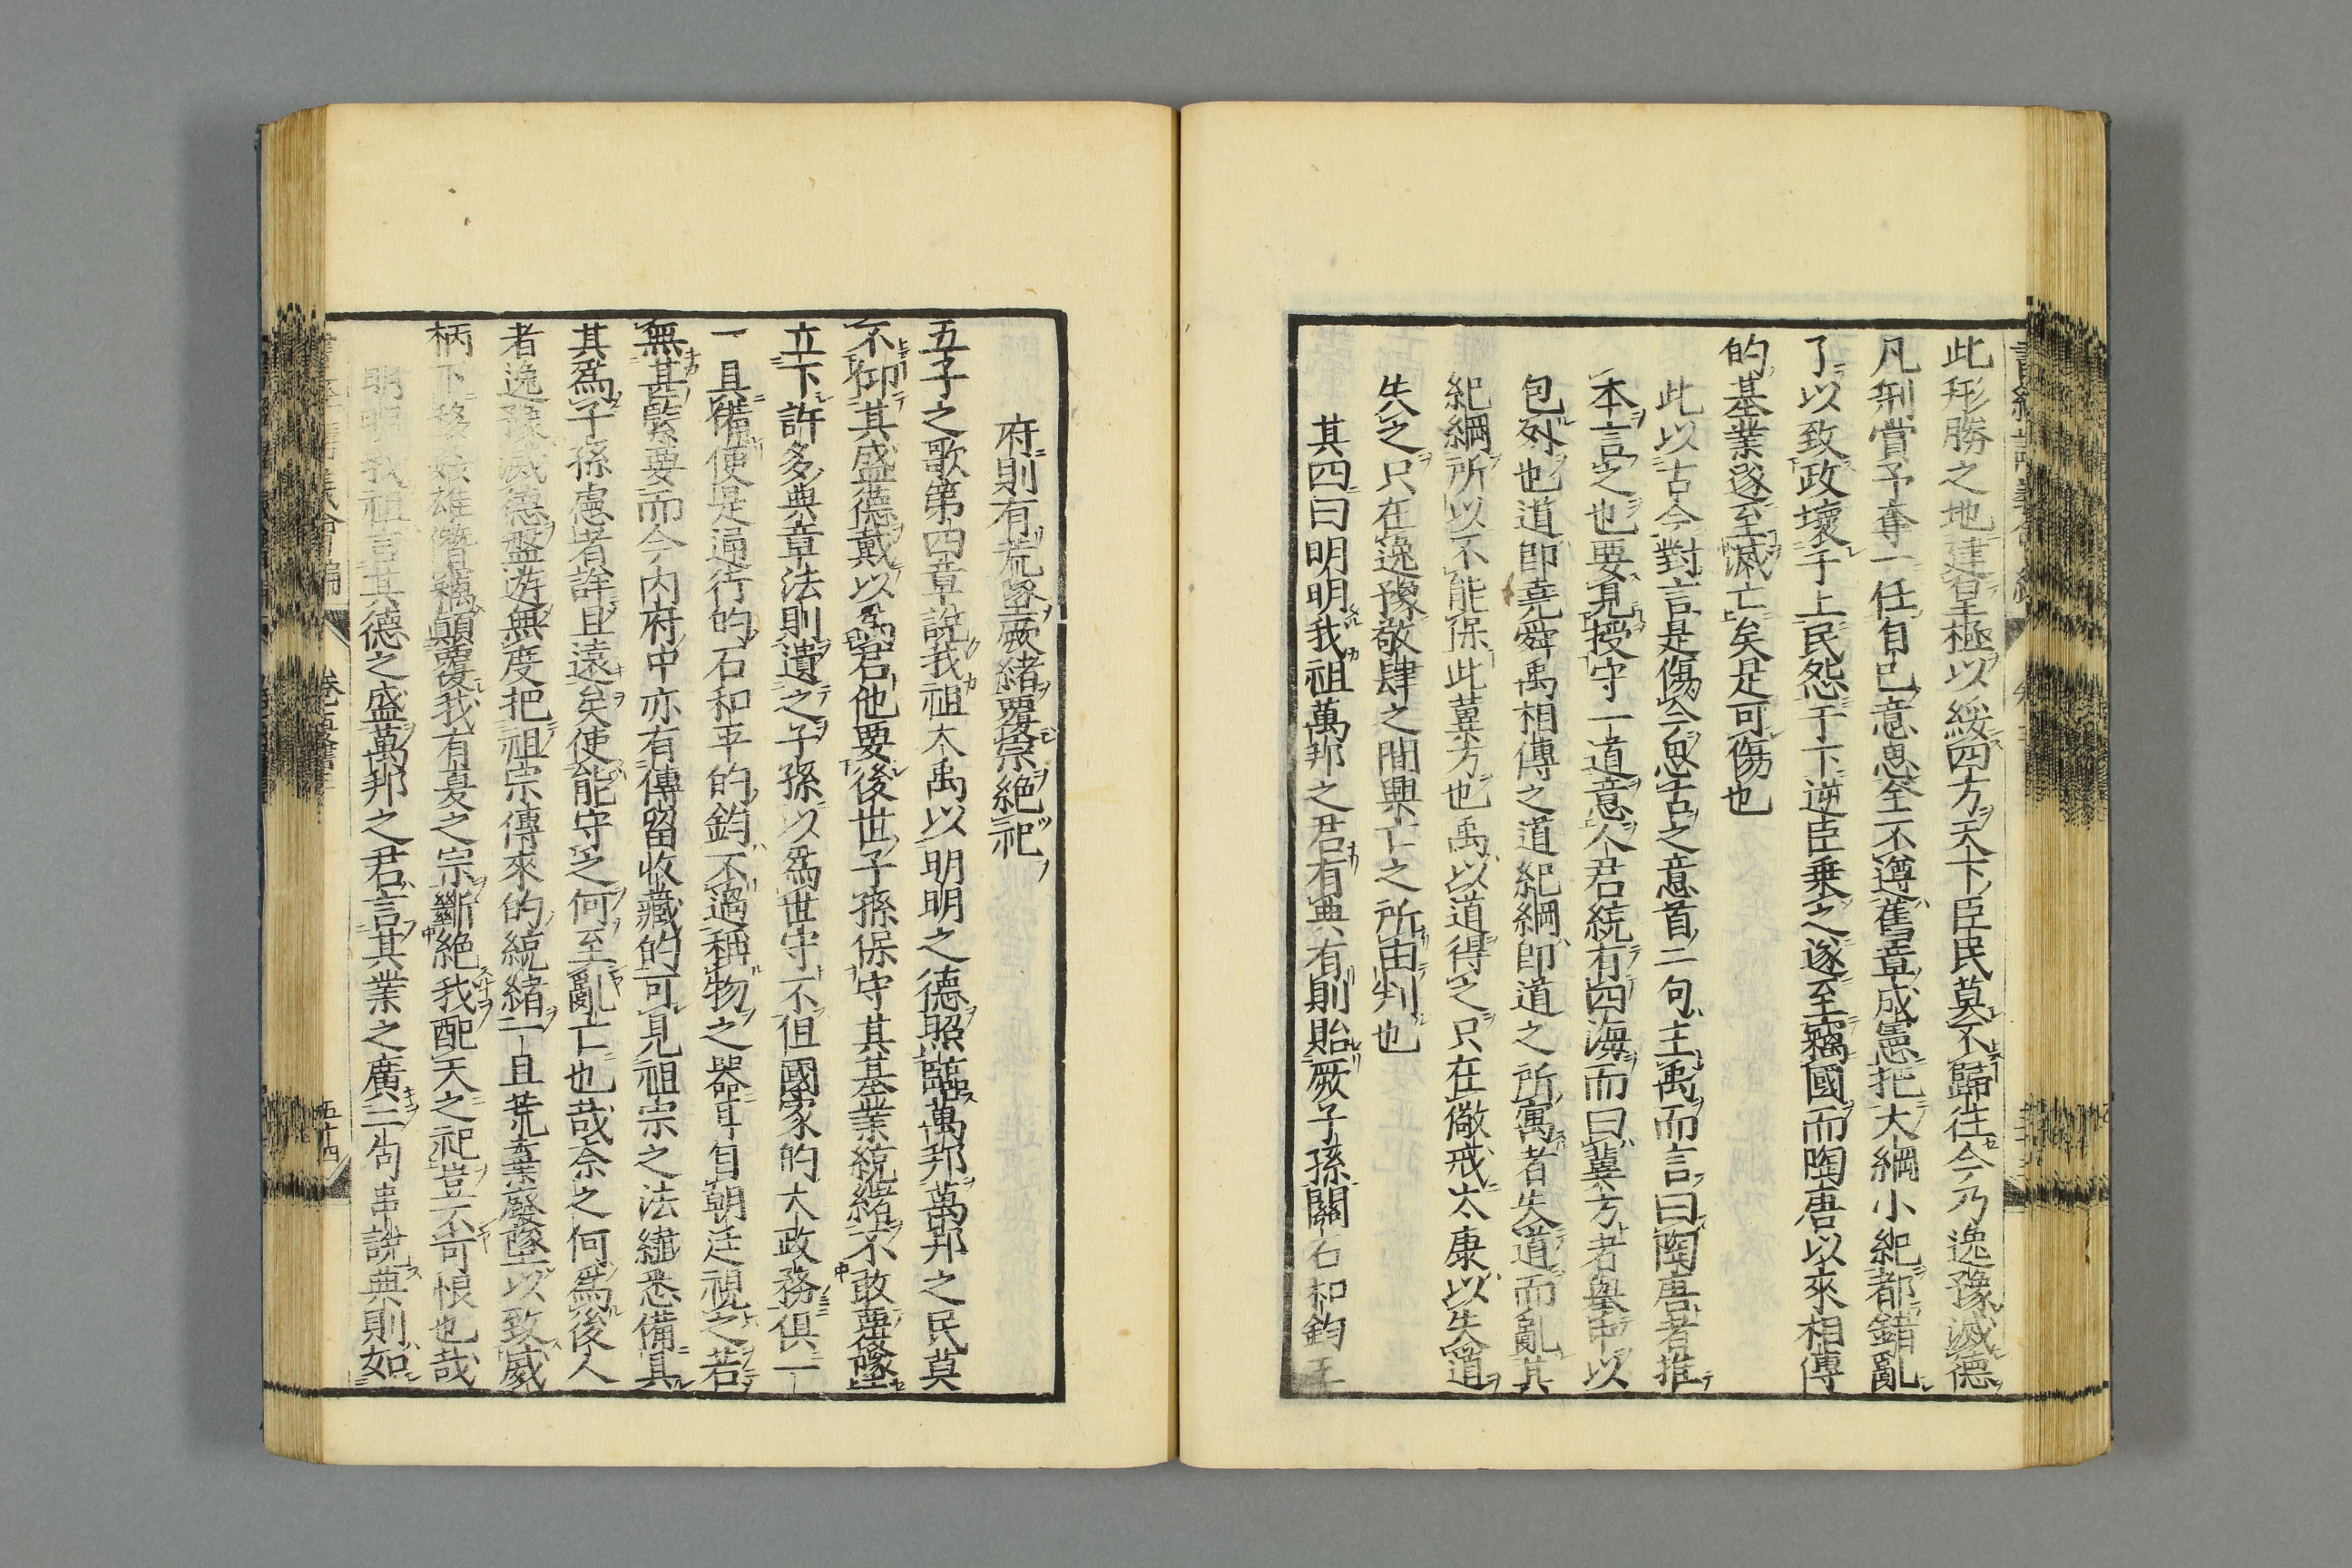 此形勝之地建皇極以綏四方天下臣民莫不歸往今乃逸豫滅德
凡刑賞予奪一任自己意思全不遵舊章成憲把大綱小紀都錯亂
了以致政壞于上民怨于下逆臣乗之遂至竊國而陶唐以來相傳
的基業遂至滅亡矣是可傷也
此以古今對言是傷今思古之意首二句主禹而言曰陶唐者推
本言之也要見授守一道意人君統有四海而曰冀方者舉中以
包外也道即堯舜禹相傳之道紀綱即道之所寓者失道而亂其
紀綱所以不能保此冀方也禹以道得之只在儆戒太康以失道
失之只在逸豫敬肆之間興亡之所由判也
其四曰明明我祖萬邦之君有典有則貽厥子孫關石和鈞王
府則有荒墜厥緒覆宗絶祀
五子之歌第四章說我祖大禹以明明之德照臨萬邦萬邦之民莫
不仰其盛德戴以爲君他要後世子孫保守其基業統緒不敢荒墜
立下許多典章法則遺之子孫以爲世守不但國家的大政務俱一
一具備便是通行的石和平的鈞不過稱物之器耳自朝廷視之若
無甚緊要而今内府中亦有傳留收藏的可見祖宗之法纖悉備具
其爲子孫慮者詳且遠矣使能守之何至亂亡也哉奈之何爲後人
者逸豫滅德盤遊無度把祖宗傳來的統緒一旦荒棄廢墜以致威
柄下移姦雄僭竊顛覆我有夏之宗斷絶我配天之祀豈不可恨也哉
明明我祖言其德之盛萬邦之君言其業之廣二句串說典則如